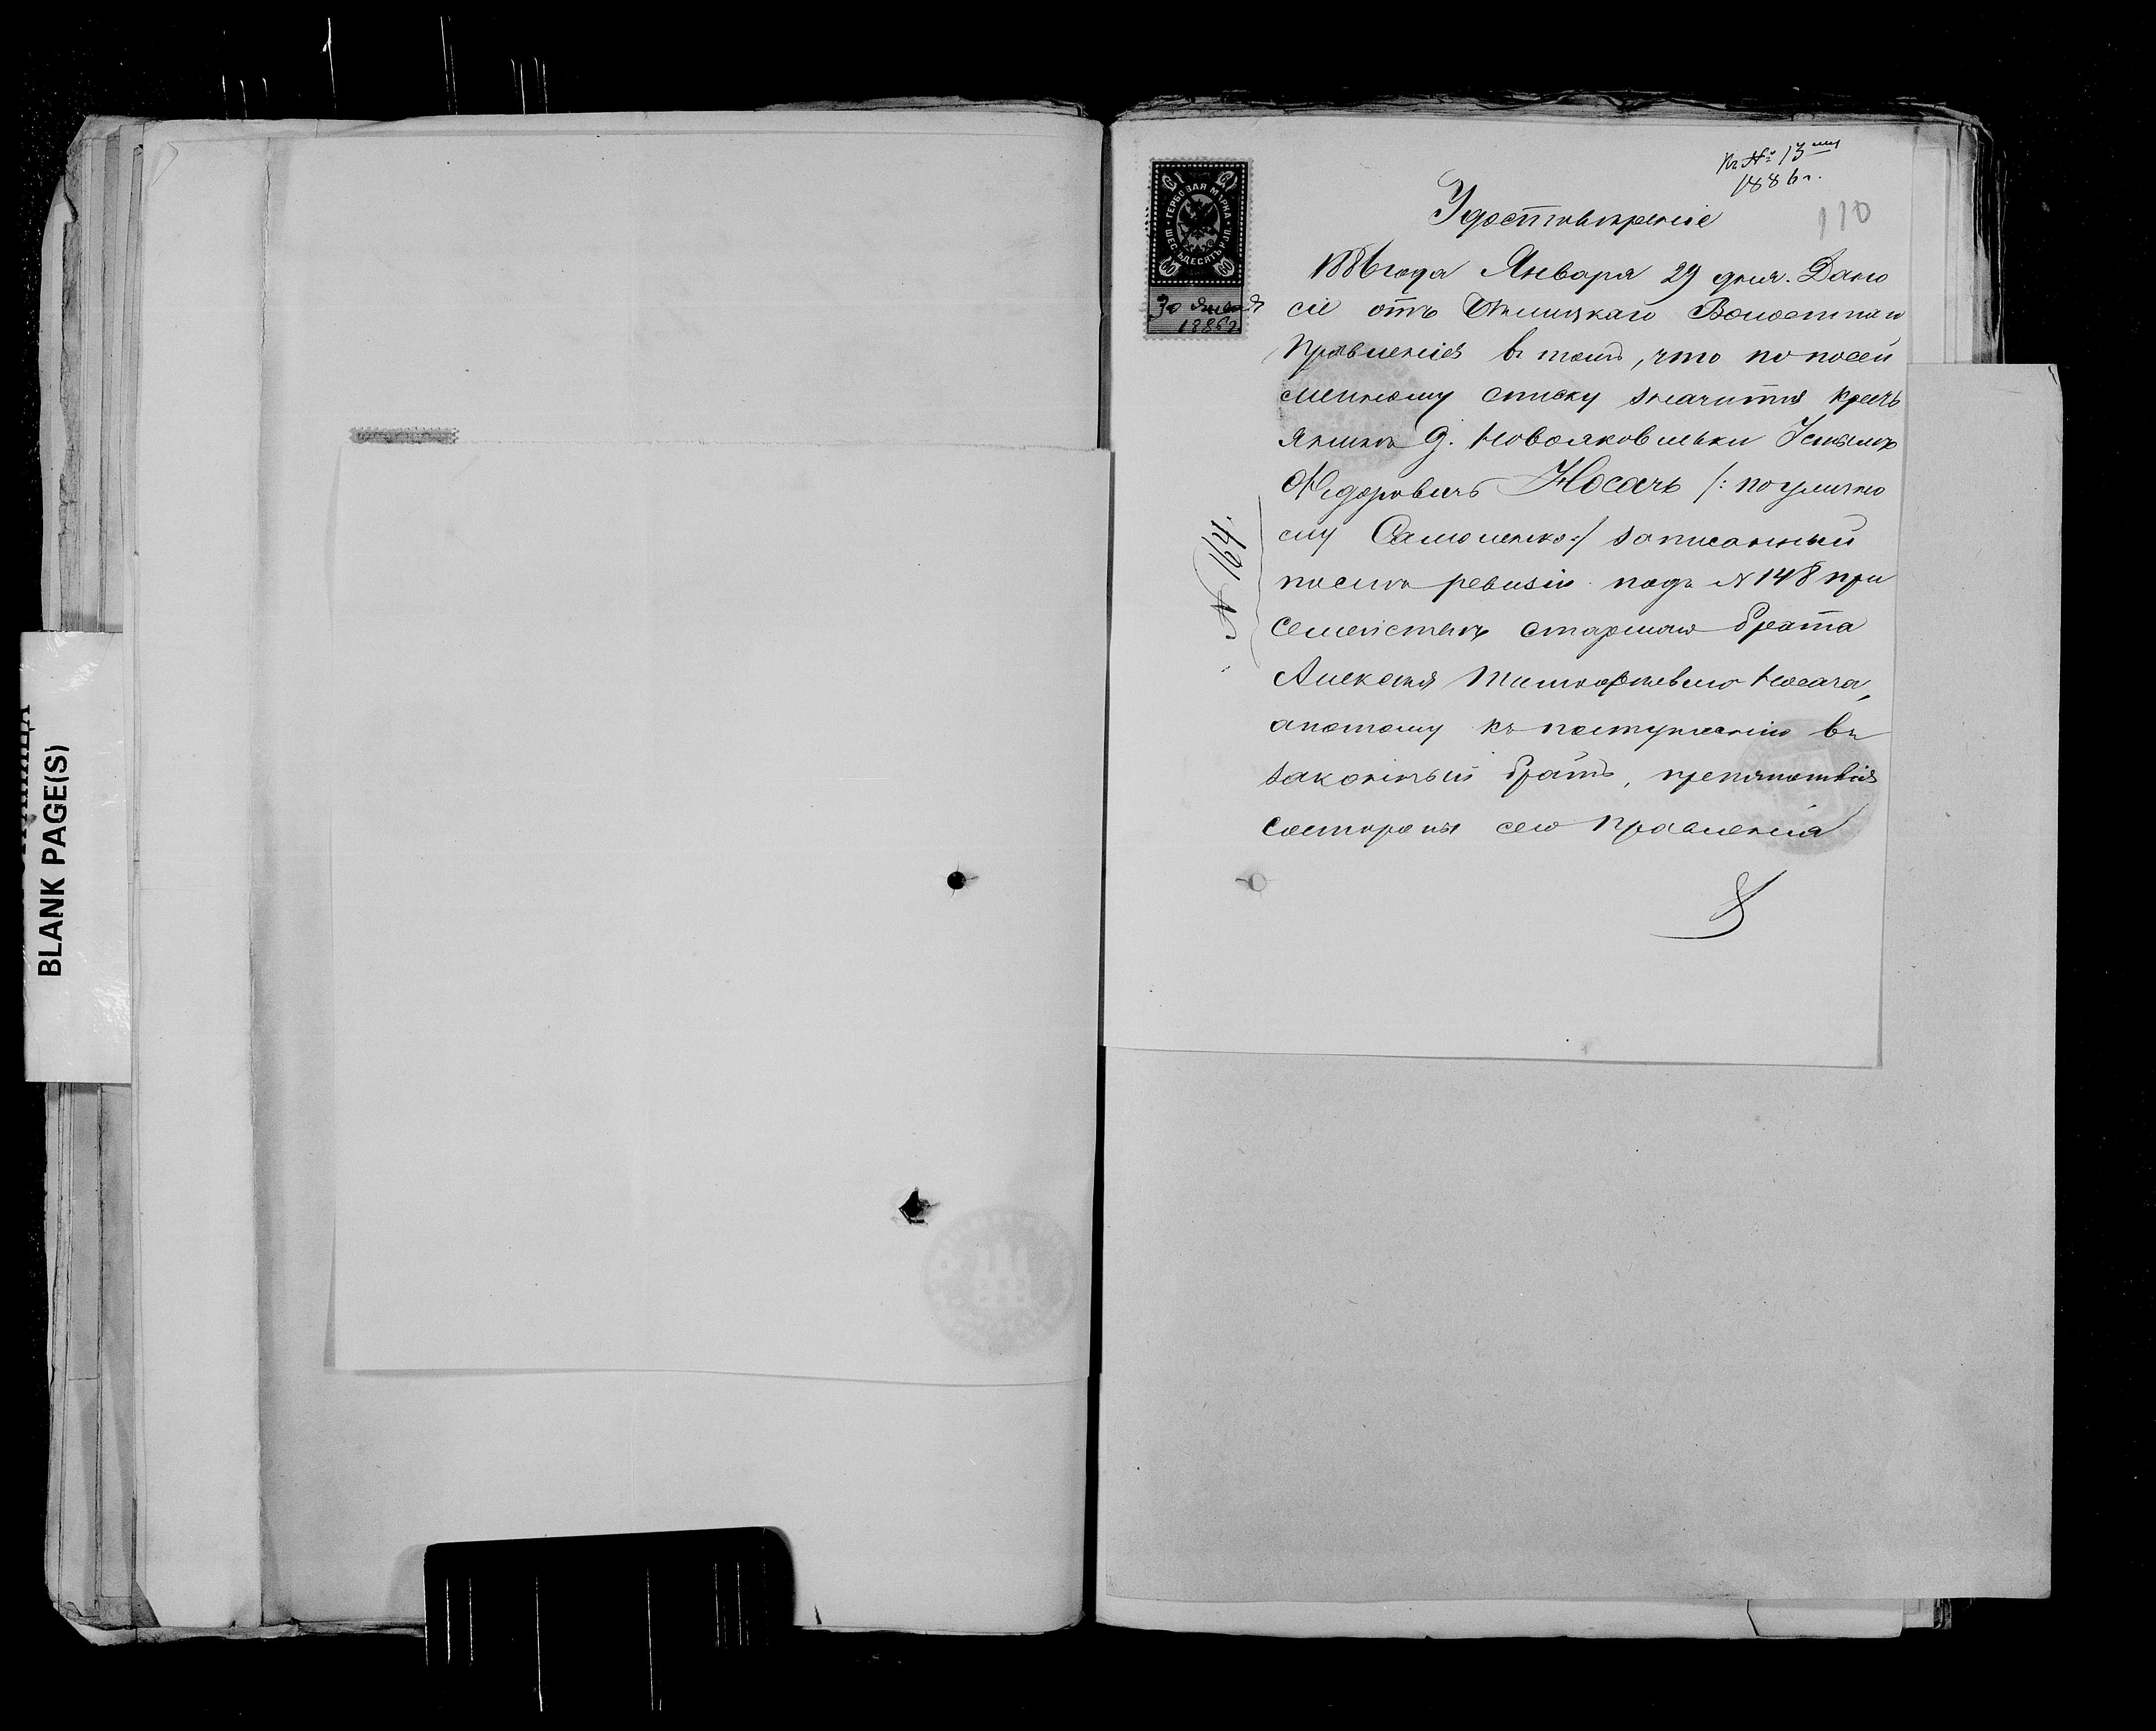 BLANK PAGE(S)
Къ № 13
1886 г.
110
ГЕРБОВАЯ МАРКА
ШЕСТЬДЕСЯТЪ КОП.
60
30 Января
1886 г
Удостовѣреніе
1886 года Января 29 дня. Дано
сіе отъ Волостнаго
Правленія въ томъ, что по посей
мейному списку значится крестъ
янинъ д. Новояковлевки
Федоровичъ Носачъ /: по улично
му Самойленко :/ записанный
послѣ ревизіи подъ № 148 при
семействѣ старшаго брата
Алексѣя Тимофѣевича Носача,
а потому къ поступленію въ
законный бракъ, препятствія
со стороны сего Правленія
№ 164.